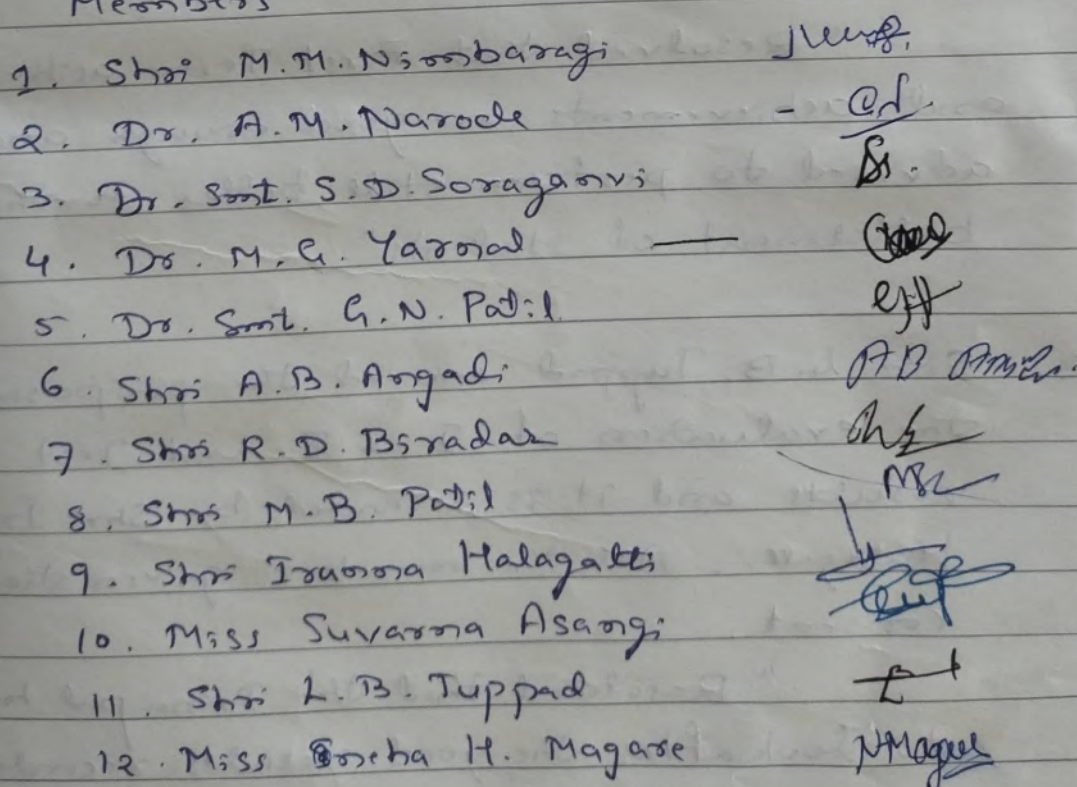 Members
1. Shri M.M. Nimbaragi
2. Dr. A.M. Narode -
3. Dr. Smt. S.D. Soraganvi
4. Dr. M.G. Yarnal —
5. Dr. Smt. G.N. Patil
6. Shri A.B. Angadi AB
7. Shri R.D. Biradar
8. Shri M.B. Patil
9. Shri Iranna Halagatti
10. Miss Suvarna Asangi
11. Shri L.B. Tuppad
12. Miss Sneha H. Magare NMagare